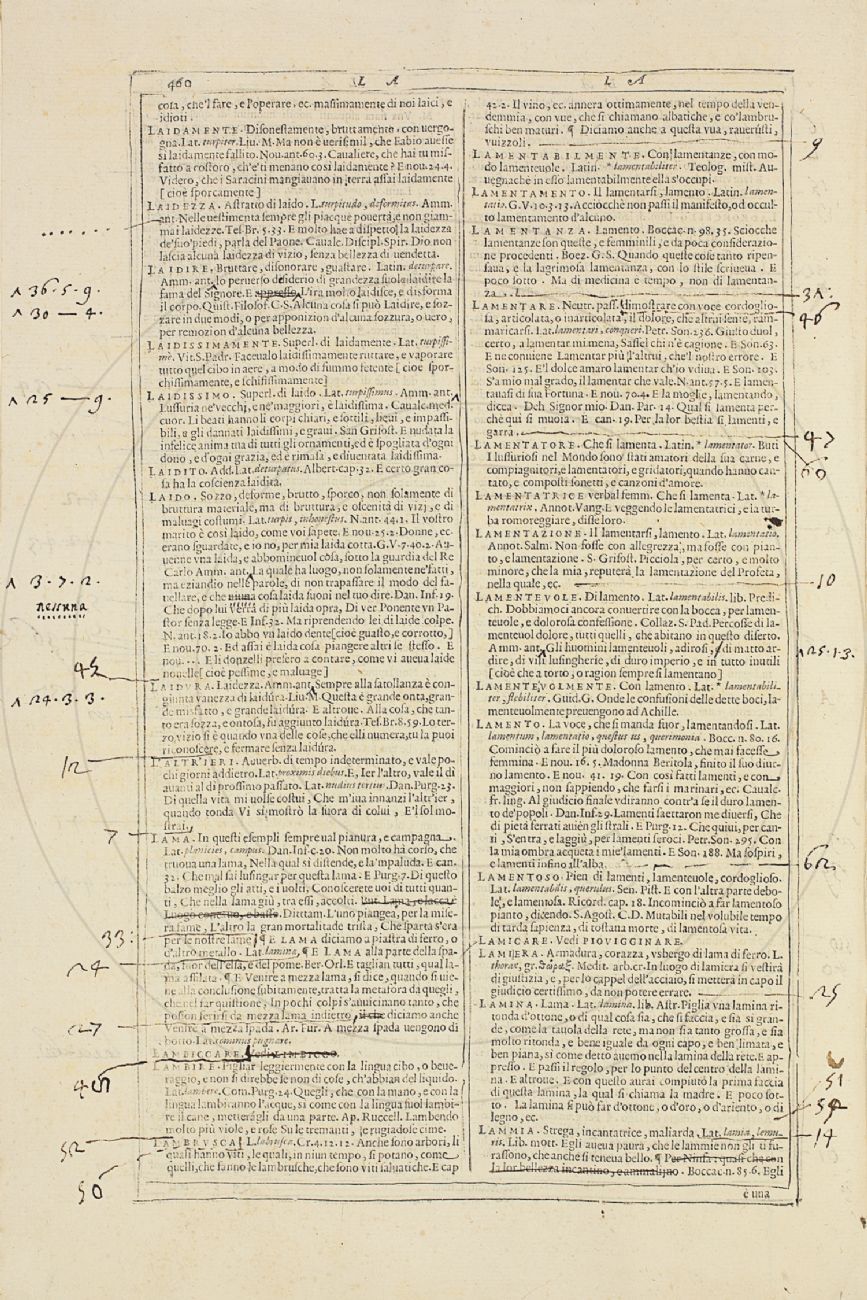 460
L A
L A
cosa, che'l fare, e l'operare. ec. massimamente di noi laici, e
idioti.
LAIDAMENTE. Disonestamente, bruttamente, con uergo-
gna. Lat. turpiter. Liu. M. Ma non è uerisimil, che Fabio auesse
sì laidamente fallito. Nou. ant. 60. 3. Caualiere, che hai tu mis-
fatto a costoro, ch'e' ti menano così laidamente? E nou. 24. 4.
Videro, che i Saracini mangiauano in terra assai laidamente
[cioè sporcamente]
LAIDEZZA. Astratto di laido. L. turpitudo, deformitas. Amm.
ant. Nelle uestimenta sempre gli piacque pouertà, e non giam-
mai laidezze. Tes. Br. 5. 33. E molto hae a dispetto la laidezza
de' suo' piedi, parla del Paone. Caualc. Discipl. Spir. Dio non
lascia alcuna laidezza di vizio, senza bellezza di uendetta.
LAIDIRE, Bruttare, disonorare, guastare. Latin. deturpare.
Amm. ant. lo peruerso desiderio di grandezza suole laidire la
fama del Signore. E appresso. L'ira molto laidisce, e disforma
il corpo. Quist. Filosof. C. S. Alcuna cosa si può Laidire, e soz-
zare in due modi, o per apposizion d'alcuna sozzura, o uero,
per remozion d'alcuna bellezza.
LAIDISSIMAMENTE. Superl. di laidamente. Lat. turpissi-
mè. Vit. S. Padr. Faceualo laidissimamente ruttare, e vaporare
tutto quel cibo in aere, a modo di fummo fetente [cioè spor-
chissimamente, e schifissimamente]
LAIDISSIMO. Superl. di laido. Lat. turpissimus. Amm. ant.
Lussuria ne' vecchi, e ne' maggiori, è laidissima. Caualc. med.
cuor. Li beati hanno li corpi chiari, e sottili, beui, e impassi-
bili, a gli dannati laidissimi, e graui. San Grisost. E nudata la
infelice anima tua di tutti gli ornamenti, ed è spogliata d'ogni
dono, e d'ogni grazia, ed è rimasa, e diuentata laidissima.
LAIDITO. Add. Lat. deturpatus. Albert. cap. 32. E certo gran co-
sa ha la coscienza laidita.
LAIDO. Sozzo, deforme, brutto, sporco, non solamente di
bruttura materiale, ma di bruttura, e oscenità di vizj, e di
maluagi costumi. Lat. turpis, inhonestus. N. ant. 44. 1. Il vostro
marito è così laido, come voi sapete. E nou. 25. 2. Donne, ec.
erano sguardate, e io no, per mia laida cotta. G. V. 7. 40. 2. Au-
uenne vna laida, e abbomineuol cosa, sotto la guardia del Re
Carlo Amm. ant. La quale ha luogo, non solamente ne' fatti,
ma eziandio nelle parole, di non trapassare il modo del fa-
uellare, e che niuna cosa laida fuoni nel tuo dire. Dan. Inf. 19.
Che dopo lui verrà di più laida opra, Di ver Ponente vn Pa-
stor senza legge. E Inf. 32. Ma riprendendo lei di laide colpe.
N. ant. 18. 2. Io abbo vn laido dente [cioè guasto, e corrotto,]
E nou. 70. 2. Ed assai è laida cosa piangere altri se stesso. E
nou. . . E li donzelli presero a contare, come vi auea laide
nouelle [cioè pessime, e maluage]
LAIDURA. Laidezza. Amm. ant. Sempre alla satollanza è con-
giunta vanezza di laidura. Liu. M. Questa è grande onta, gran-
de misfatto, e grande laidura. E altroue. Alla cosa, che tan-
to era sozza, e ontosa, fu aggiunto laidura. Tes. Br. 8. 59. Lo ter-
zo, vizio sì è quando vna delle cose, che elli numera, tu la puoi
riconoscere, e fermare senza laidura.
L'ALTR'IERI. Auuerb. di tempo indeterminato, e vale po-
chi giorni addietro. Lat. proximis diebus. E, Ier l'altro, vale il dì
auanti al dì prossimo passato. Lat. nudius tertius. Dan. Purg. 23.
Di quella vita mi uolse costui, Che m'iua innanzi l'altr'ier,
quando tonda Vi si mostrò la suora di colui, E'l sol mo-
strai.
LAMA. In questi esempli sempre ual pianura, e campagna.
Lat. planicies, campus. Dan. Inf. c. 20. Non molto ha corso, che
truoua una lama, Nella qual si distende, e la 'mpaluda. E can.
32. Che mal sai lusingar per questa lama. E Purg. 7. Di questo
balzo meglio gli atti, e i uolti, Conoscerete uoi di tutti quan-
ti, Che nella lama giù, tra essi, accolti. But. Lama, e la caca
Luogo concauo, e basso. Dittam. L'uno piangea, per la mise-
ra fame, L'altro la gran mortalitade trista, Che sparta s'era
per le nostre lame. ¶ E LAMA diciamo a piastra di ferro, o
d'altro metallo. Lat. lamina, ¶ E LAMA alla parte della spa-
da, fuor dell'elsa, e del pome. Ber. Orl. E taglian tutti, qual la-
ma affilata. ¶ E Venire a mezza lama, si dice, quando si uie-
ne alla conclusione subitamente, tratta la metafora da quegli,
che nel far quistione, In pochi colpi s'auuicinano tanto, che
posson ferirsi da mezza lama indietro, il che diciamo anche
Venire a mezza spada. Ar. Fur. A mezza spada uengono di
botto. Lat. comminus pugnare.
LAMBICCARE. Vedi LIMBICCO.
LAMBIRE. Pigliar leggiermente con la lingua cibo, o beue-
raggio, e non si direbbe se non di cose, ch'abbian del liquido.
Lat. lambere. Com. Purg. 24. Quegli, che con la mano, e con la
lingua lambiranno l'acque, sì come con la lingua suol lambi-
re il cane, metterági da una parte. Ap. Ruccell. Lambendo
molto più viole, e rose Su le tremanti, le rugiadose cime.
LAMBRUSCA. L. labrusca. Cr. 4. 12. 12. Anche sono arbori, li
quasi hanno viti, le quali, in niun tempo, si potano, come
quelli, che fanno le lambrusche, che sono viti saluatiche. E cap
42. 2. Il vino, ec. annera ottimamente, nel tempo della ven-
demmia, con vue, che si chiamano albatiche, e co' lambru-
schi ben maturi. ¶ Diciamo anche a questa vua, raueriusti,
vuizzoli.
LAMENTABILMENTE. Con lamentanze, con mo-
do lamenteuole. Latin. * lamentabiliter. Teolog. mist. Au-
uegnachè in esso lamentabilmente ella s'occupi.
LAMENTAMENTO. Il lamentarsi, lamento. Latin. lamen-
tatio. G. V. 10. 3. 13. Acciocchè non passi il manifesto, od occul-
to lamentamento d'alcuno.
LAMENTANZA. Lamento. Boccac. n. 98. 35. Sciocche
lamentanze son queste, e femminili, e da poca considerazio-
ne procedenti. Boez. G. S. Quando queste cose tanto ripen-
saua, e la lagrimosa lamentanza, con lo stile scriueua. E
poco sotto. Ma di medicina e tempo, non di lamentan-
za.
LAMENTARE. Neutr. pass. dimostrare con voce cordoglio-
sa, articolata, o inarticolata, il dolore, che altri sente, ram-
maricarsi. Lat. lamentari, conqueri. Petr. Son. 236. Giusto duol,
certo, a lamentar mi mena, Sassel chi n'è cagione. E Son. 63.
E ne conuiene Lamentar più l'altrui, che'l nostro errore. E
Son. 125. E'l dolce amaro lamentar ch'io vdiua. E Son. 103.
S'a mio mal grado, il lamentar che vale. N. ant. 57. 5. E lamen-
tauasi di sua Fortuna. E nou. 70. 4. E la moglie, lamentando,
dicea. Deh Signor mio. Dan. Par. 14. Qual si lamenta per-
chè qui si muoia. E can. 19. Per la lor bestia si lamenti, e
garra.
LAMENTATORE. Che si lamenta. Latin. * lamentator. Buti
I lussuriosi nel Mondo sono stati amatori della sua carne, e
compiagnitori, e lamentatori, e gridatori, quando hanno can-
tato, e composti sonetti, e canzoni d'amore.
LAMENTATRICE verbal femm. Che si lamenta. Lat. * la-
mentatrix. Annot. Vang. E veggendo le lamentatrici, e la tur-
ba romoreggiare, disse loro.
LAMENTAZIONE. Il lamentarsi, lamento. Lat. lamentatio.
Annot. Salm. Non fosse con allegrezza, ma fosse con pian-
to, e lamentazione. S. Grisost. Picciola, per certo, e molto
minore, che la mia, reputerà la lamentazione del Profeta,
nella quale, ec.
LAMENTEVOLE. Di lamento. Lat. lamentabilis. lib. Predi-
ch. Dobbiamoci ancora conuertire con la bocca, per lamen-
teuole, e dolorosa confessione. Collaz. S. Pad. Percosse di la-
menteuol dolore, tutti quelli, che abitano in questo diserto.
Amm. ant. Gli huomini lamenteuoli, adirosi, di matto ar-
dire, di visi lusingherie, di duro imperio, e in tutto inutili
[cioè che a torto, o ragion sempre si lamentano]
LAMENTEVOLMENTE. Con lamento. Lat. * lamentabili-
ter, flebiliter. Guid. G. Onde le confussioni delle dette boci, la-
menteuolmente preuengono ad Achille.
LAMENTO. La voce, che si manda fuor, lamentandosi. Lat.
lamentum, lamentatio, questus us, querimonia. Bocc. n. 80. 16.
Cominciò a fare il più doloroso lamento, che mai facesse
femmina. E nou. 16. 5. Madonna Beritola, finito il suo diur-
no lamento. E nou. 41. 19. Con così fatti lamenti, e con
maggiori, non sappiendo, che farsi i marinari, ec. Caualc.
fr. ling. Al giudicio finale vdiranno contr'a sé il duro lamen-
to de' popoli. Dan. Inf. 29. Lamenti saettaron me diuersi, Che
di pietà ferrati auien gli strali. E Purg. 12. Che quiui, per can-
ti, S'entra, e laggiù, per lamenti feroci. Petr. Son. 295. Con
la mia ombra acqueta i mie' lamenti. E Son. 188. Ma sospiri,
e lamenti infino all'alba.
LAMENTOSO. Pien di lamenti, lamenteuole, cordoglioso.
Lat. lamentabilis, querulus. Sen. Pist. E con l'altra parte debo-
le, e lamentosa. Ricord. cap. 18. Incominciò a far lamentoso
pianto, dicendo. S. Agost. C. D. Mutabili nel volubile tempo
di tarda sapienza, di tostana morte, di lamentosa vita.
LAMICARE. Vedi PIOVIGGINARE.
LAMIERA. Armadura, corazza, vsbergo di lama di ferro. L.
thorax, gr. θώραξ. Medit. arb. cr. In luogo di lamiera si vestirà
di giustizia, e, per lo cappel dell'acciaio, si metterà in capo il
giudicio certissimo, da non potere errare.
LAMINA. Lama. Lat. lamina. lib. Astr. Piglia vna lamina ri-
tonda d'ottone, o di qual cosa sia, che si faccia, e sia sì gran-
de, come la tauola della rete, ma non sia tanto grossa, e sia
molto ritonda, e bene iguale da ogni capo, e ben limata, e
ben piana, sì come detto auemo nella lamina della rete. E ap-
presso. E passi il regolo, per lo punto del centro della lami-
na. E altroue. E con questo aurai compiuto la prima faccia
di questa lamina, la qual si chiama la madre. E poco sot-
to. La lamina si può far d'ottone, o d'oro, o d'ariento, o di
legno, ec.
LAMMIA. Strega, incantatrice, maliarda, Lat. lamia, lemu-
ris. Lib. mott. Egli aueua paura, che le lammie non gli ti fu-
rassono, che anche si teneua bello. ¶ Per Ninfa: quasi che con
la lor bellezza incantino, e ammalijno. Boccac. n. 85. 6. Egli
è una
36 . 5 . 9 .
30 — 4 .
25 — 9 .
3 . 7 . 2 .
nessuna
45
24 . 3 . 3
12
7
33
24
27
52
50
9
31
46
47
10
25 . 1 . 3 .
62
25
51
54
14